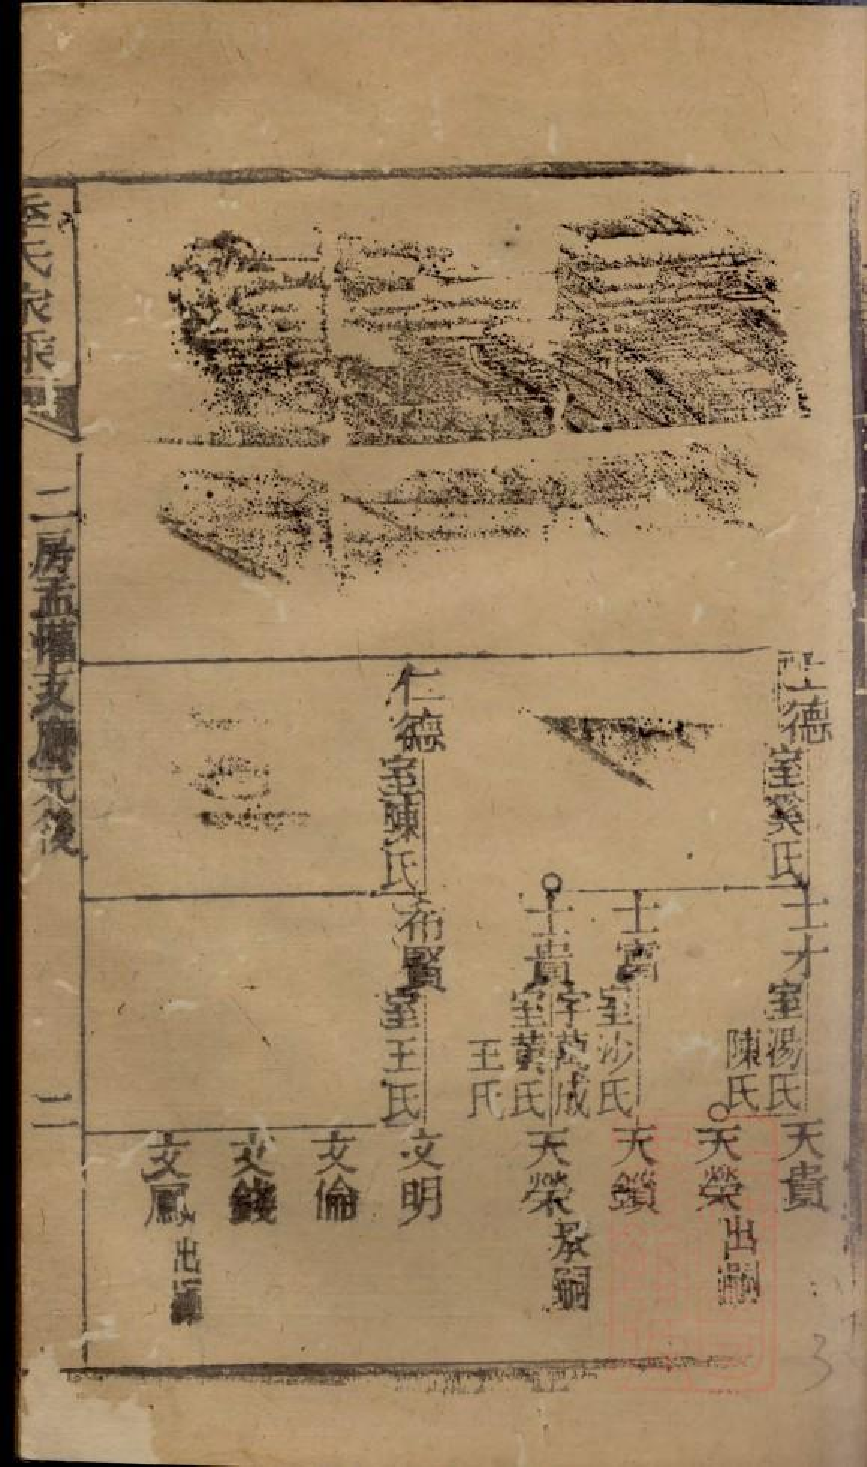 德室奚氏
仁德室陳氏
士才室湯氏
陳氏
士富室沙氏
士貴字萬成
室黃氏
王氏
希賢室王氏
天貴
天榮出嗣
天鎖
天榮承嗣
文明
文倫
文錢
文鳳出
二房孟
文
元後
二
3